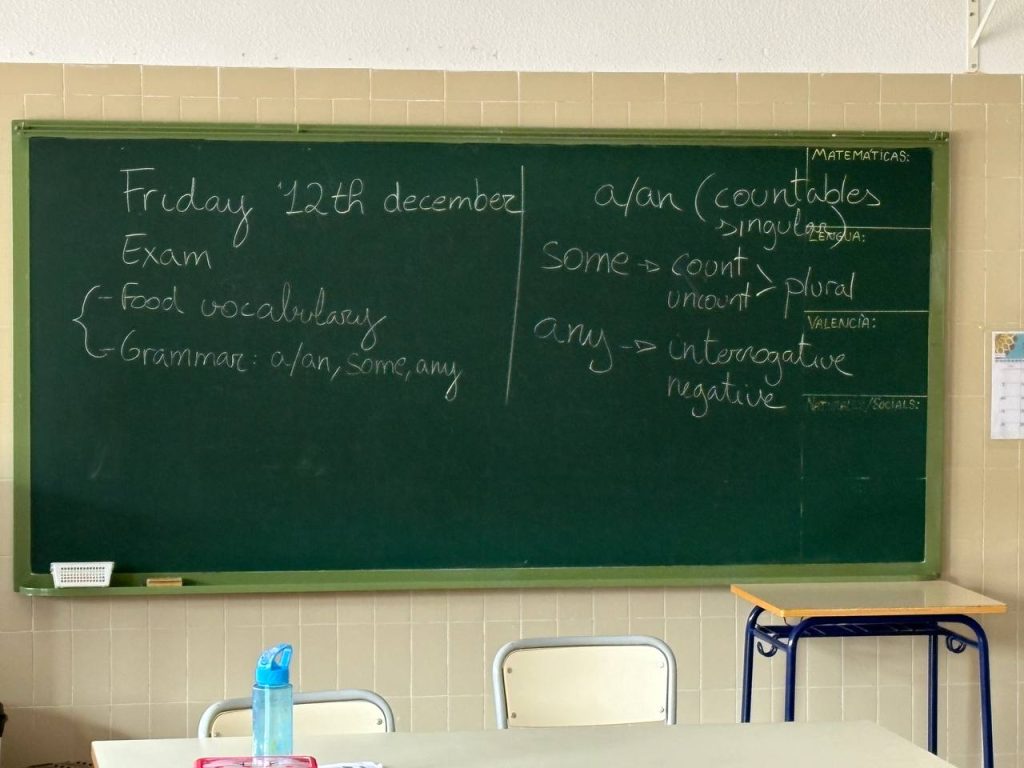 Friday 12th december
Exam
- Food vocabulary
- Grammar: a/an, some, any
a/an (countables
singular)
some → count
uncount > plural
any → interrogative
negative
MATEMÁTICAS:
LENGUA:
VALENCIÀ:
/SOCIALS: